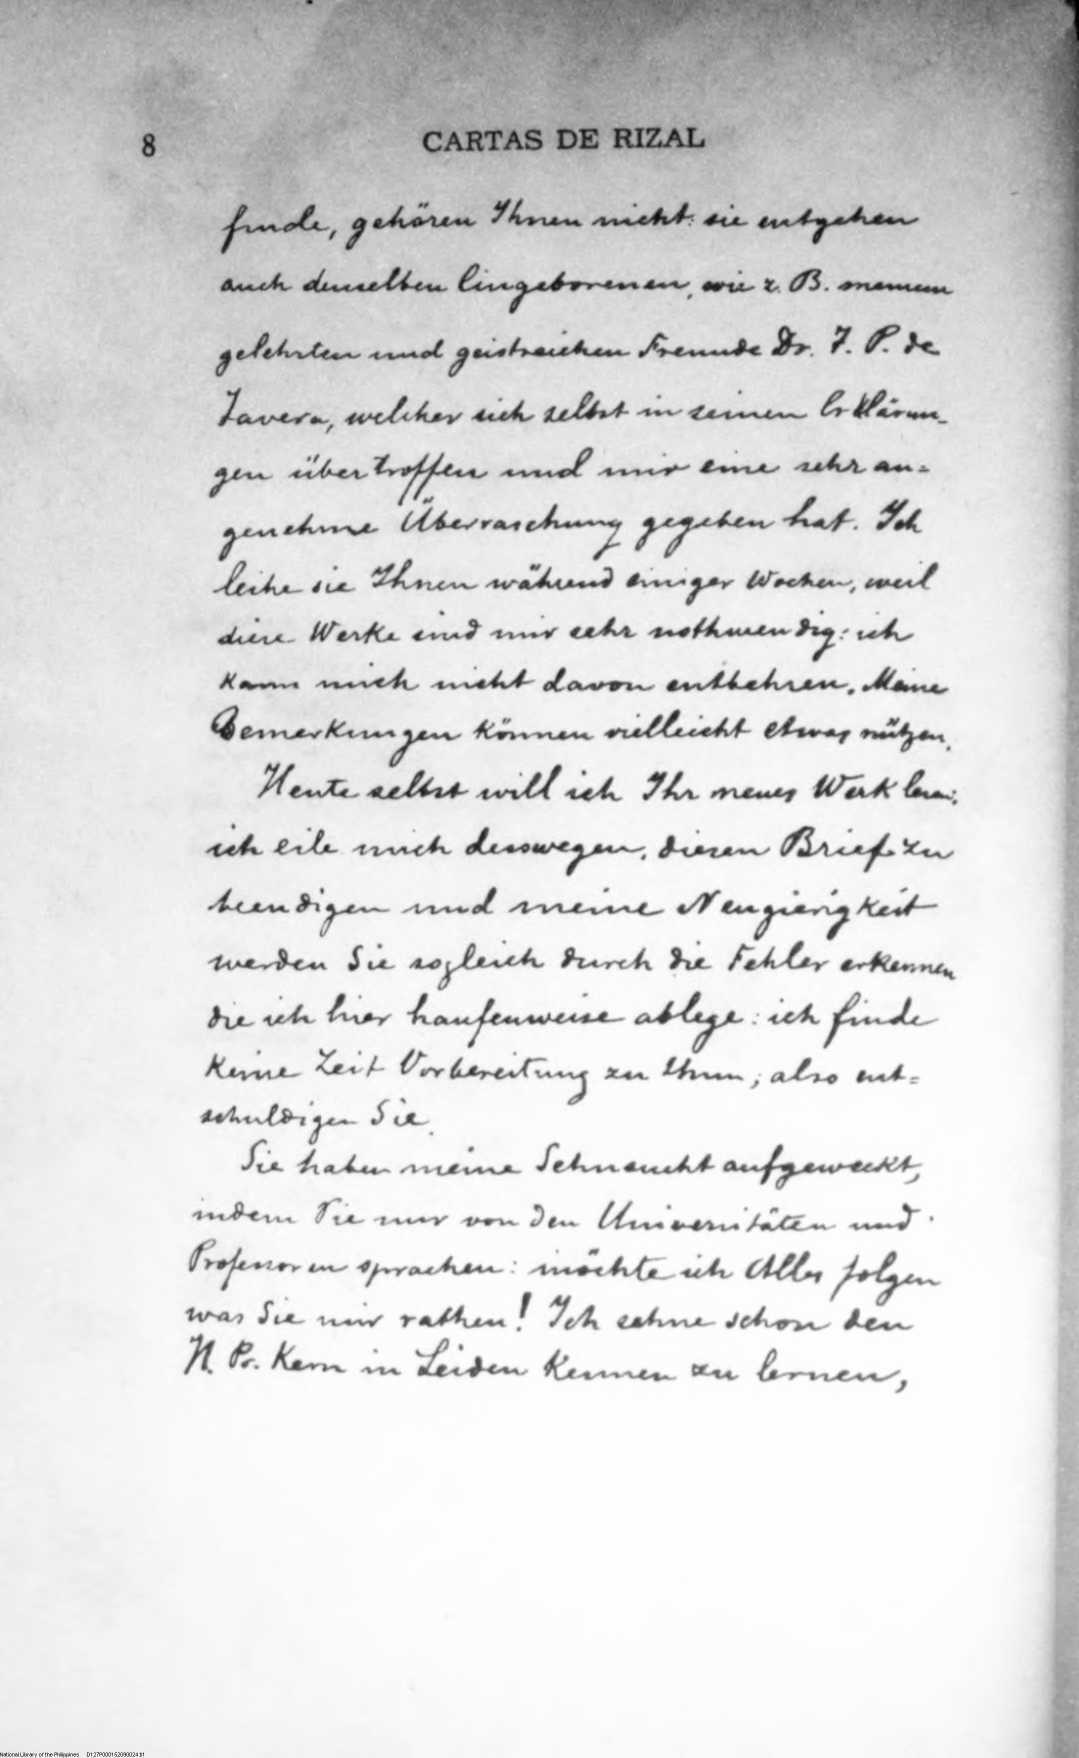 8 CARTAS DE RIZAL
finde, gehören Ihnen nicht: sie entgehen
auch denselben Eingeborenen, wie z. B. meinem
gelehrten und geistreichen Freunde Dr. T. P. de
Tavera, welcher sich selbst in seinen Erklärun-
gen übertroffen und mir eine sehr an=
genehme Überraschung gegeben hat. Ich
leihe sie Ihnen während einiger Wochen, weil
diese Werke sind mir sehr nothwendig: ich
kann mich nicht davon entbehren. Meine
Bemerkungen können vielleicht etwas nützen.
Heute selbst will ich Ihr neues Werk lesen;
ich eile mich desswegen, diesen Brief zu
beendigen und meine Neugierigkeit
werden Sie sogleich durch die Fehler erkennen
die ich hier haufenweise ablege: ich finde
keine Zeit Vorbereitung zu thun; also ent=
schuldigen Sie.
Sie haben meine Sehnsucht aufgeweckt,
indem Sie mir von den Universitäten und
Professoren sprachen: möchte ich Alles folgen
was Sie mir rathen! Ich sehne schon den
H. Pr. Kern in Leiden kennen zu lernen,
National Library of the Philippines